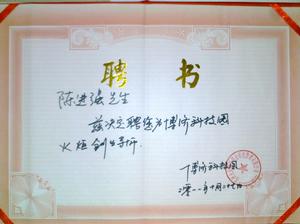 聘书
陈进强先生
兹决定聘您为博济科技园
火炬创业导师。
博济科技园
二〇一一年十月二十七日